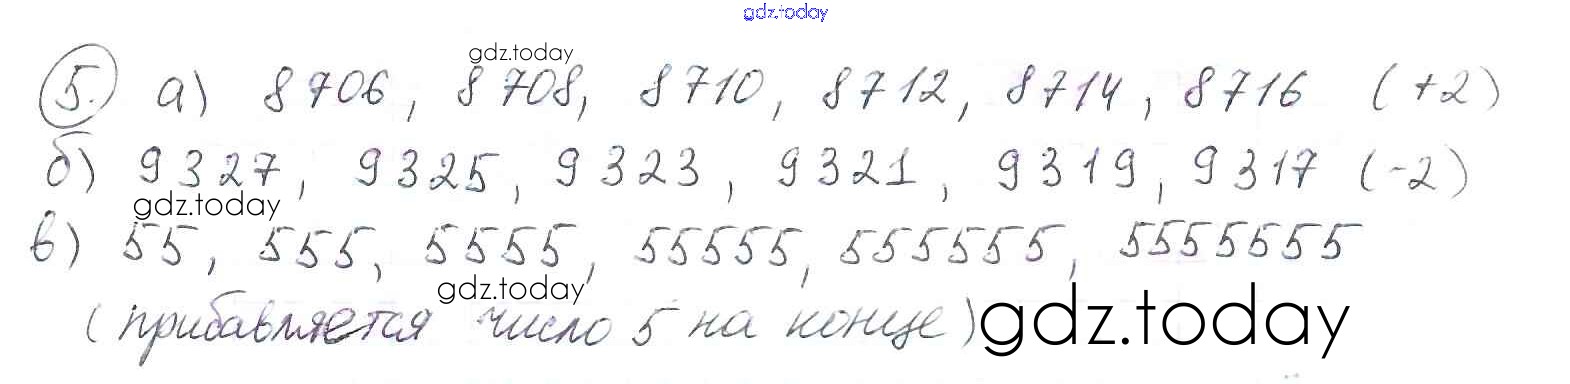 gdz.today
gdz.today
5. а) 8706, 8708, 8710, 8712, 8714, 8716 (+2)
б) 9327, 9325, 9323, 9321, 9319, 9317 (-2)
gdz.today
в) 55, 555, 5555, 55555, 555555, 5555555
gdz.today
(прибавляется число 5 на конце)
gdz.today